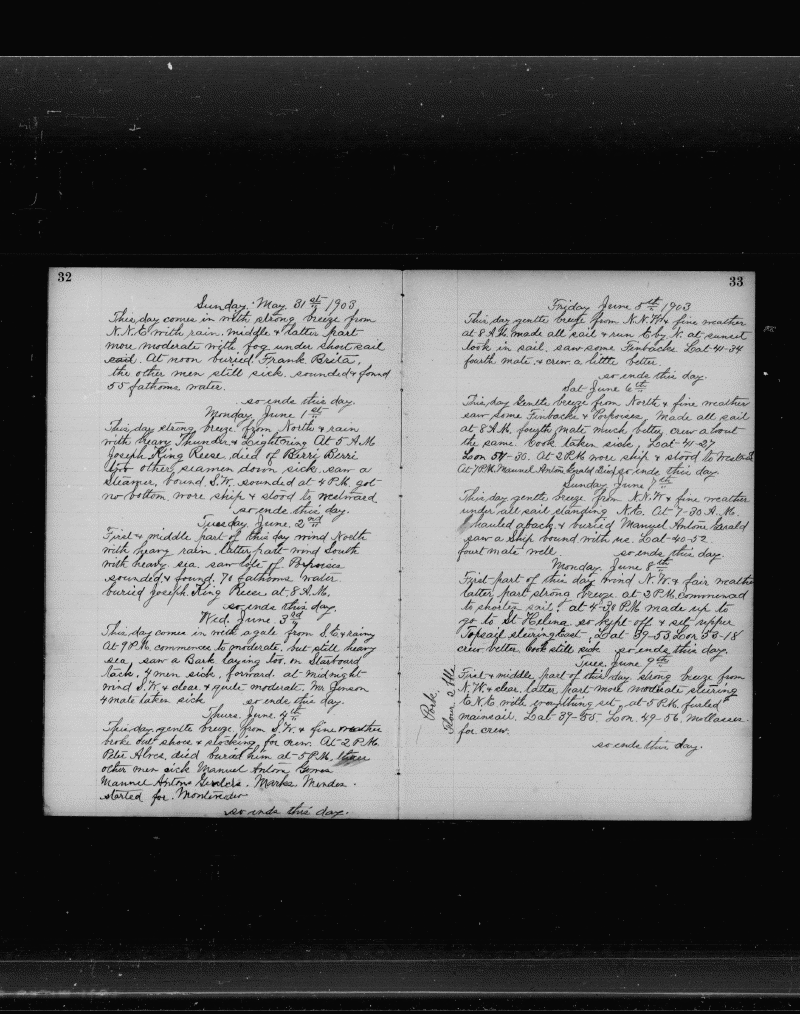 32
Sunday. May. 31st 1903
This day comes in with strong breeze from
N.N.E with rain. middle & latter part
more moderate with fog under short sail
said. At noon buried Frank Brita,
the other men still sick. sounded & found
55 fathoms water.
so ends this day.
Monday June 1st
This day strong breeze from North & rain
with heavy Thunder & Lightning At 5 A.M
Joseph King Reese, died of Berri Berri
other seamen down sick. saw a
Steamer, bound S.W. sounded at 4 P.M. got
no bottom. wore ship & stood to westward
so ends this day.
Tuesday June. 2nd
First & middle part of this day wind North
with heavy rain. latter part wind South
with heavy sea. saw lots of Porpoises
sounded & found. 70 fathoms water
buried Joseph. King Reese at 8 A.M.
so ends this day.
Wed. June 3rd
This day comes in with a gale from S.E & rainy
At 9 P.M. commences to moderate, but still heavy
sea, saw a Bark laying too. on Starboard
tack, 4 men sick, forward. at midnight
wind S.W. & clear & quite moderate. Mr Jenson
4 mate taken sick so ends this day.
Thurs. June. 4th
This day, gentle breeze, from S.W. & fine weather
broke out shoes & stocking for crew. At 2 P.M.
Peter Alves, died buried him at 5 P.M. three
other men sick Manuel Antone Gomes
Manuel Antone Geralds. Marks Mendes.
started for. Montevideo
so ends this day.
33
Friday June 5th 1903
This day gentle breeze from N.N.W. & fine weather
at 8 A.M. made all sail & run E by N. at sunset
took in sail, saw some Finbacks. Lat 41-34
fourth mate. & crew a little better
so ends this day.
Sat June 6th
This day Gentle breeze from North & fine weather
saw some Finbacks & Porpoises, Made all sail
at 8 A.M. fourth mate much better, crew about
the same. Cook taken sick, Lat 41-27
Lon 54-30. At 2 P.M wore ship & stood to Westward
At 7 P.M. Manuel Antone Gerald Died, so ends this day
Sunday June 7th
This day gentle breeze from N.N.W & fine weather
under all sail standing N.E. At 7-30 A.M.
hauled aback & buried Manuel Antone Gerald
saw a Ship bound with us. Lat 40-52
fourt mate well. so ends this day.
Monday. June 8th
First part of this day wind N.W. & fair weather
latter part strong breeze at 3 P.M. commenced
to shorten sail, at 4-30 P.M made up to
go to St Helina so kept off & set upper
Topsail steering East. Lat 39-53 Lon 53-18
crew better. Cook still sick so ends this day.
Tues. June 9th
First & middle, part of this day, strong breeze from
N.W. & clear, latter part more moderate steering
E.N.E with everything set, at 5 P.M. furled
mainsail. Lat 39-55, Lon. 49-56, Mollasses
for crew.
so ends this day.
Pork,
Flour 2 bbl